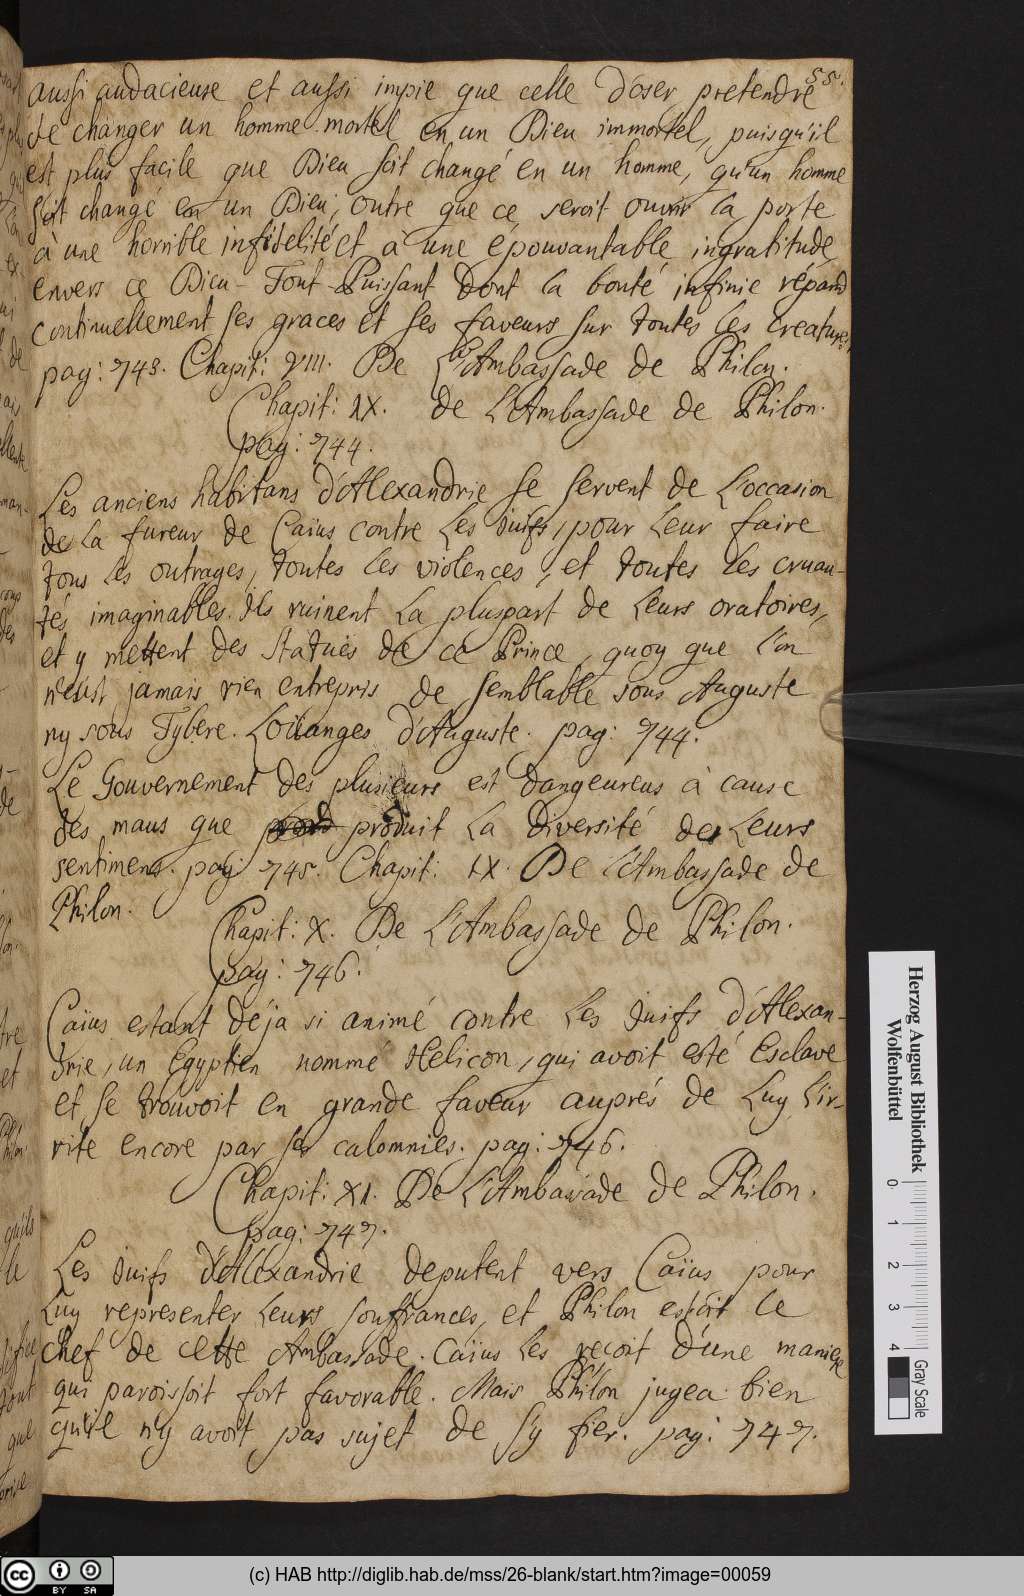 55.
aussi audacieuse et aussi impie que celle d'oser pretendre
de changer un homme mortel en un Dieu immortel, puisqu'il
est plus facile que Dieu soit changé en un homme, qu'un homme
soit changé en un Dieu; outre que ce seroit ouvrir la porte
à une horrible infidelité et à une épouvantable ingratitude
envers ce Dieu-Tout-Puissant dont la bonté infinie répand
continuellement ses graces et ses faveurs sur toutes les creatures.
pag: 743. Chapit: VIII. De L'Ambassade de Philon.
Chapit: IX. de L'Ambassade de Philon.
pag: 744.
Les anciens habitans d'Alexandrie se servent de L'occasion
de La fureur de Caius contre Les Juifs, pour Leur faire
tous Les outrages, toutes les violences, et toutes Les cruau-
tés imaginables. Ils ruinent La pluspart de Leurs oratoires,
et y mettent des Statuës de ce Prince, quoy que l'on
n'eust jamais rien entrepris de semblable sous Auguste
ny sous Tybere. Loüanges d'Auguste. pag: 744.
Le Gouvernement des plusieurs est dangeureus à cause
des maus que produit La diversité de Leurs
sentimens. pag: 745. Chapit: IX. De L'Ambassade de
Philon.
Chapit: X. De L'Ambassade de Philon.
pag: 746.
Caius estant déja si animé contre Les Juifs d'Alexan-
drie, un Egyptien nommé Helicon, qui avoit esté Esclave
et se trouvoit en grande faveur auprés de Luy L'ir-
rite encore par ses calomnies. pag: 746.
Chapit: XI. De L'Ambassade de Philon.
pag: 747.
Les Juifs d'Alexandrie deputent vers Caïus pour
Luy representer Leurs souffrances, et Philon estoit le
chef de cette Ambassade. Caïus Les reçoit d'une maniere
qui paroissoit fort favorable. Mais Philon jugea bien
qu'il n'y avoit pas sujet de s'y fier. pag: 747.
Herzog August Bibliothek
Wolfenbüttel
0 1 2 3 4
Gray Scale
cc BY SA
(c) HAB http://diglib.hab.de/mss/26-blank/start.htm?image=00059